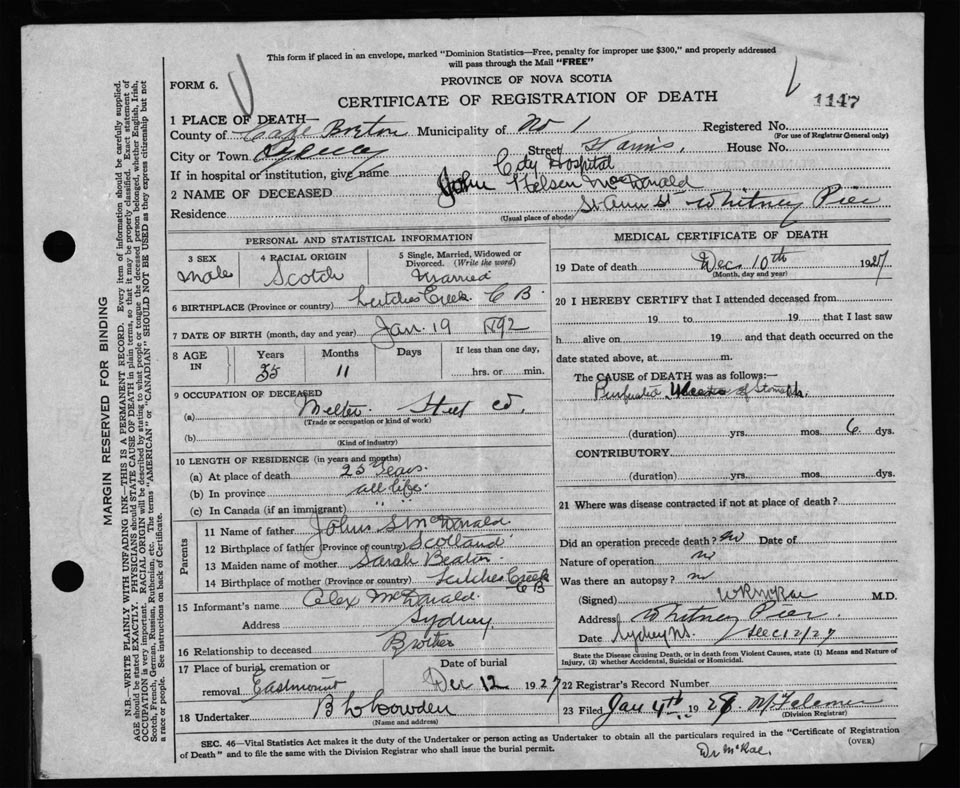 This form if placed in an envelope, marked "Dominion Statistics—Free, penalty for improper use $300," and properly addressed
will pass through the Mail "FREE"
PROVINCE OF NOVA SCOTIA
FORM 6.
CERTIFICATE OF REGISTRATION OF DEATH
1147
1 PLACE OF DEATH—
County of Cape Breton Municipality of No 1 Registered No.
(For use of Registrar General only)
City or Town Sydney Street St Ann's, House No.
If in hospital or institution, give name City Hospital
2 NAME OF DECEASED John Nelson McDonald
Residence St Ann St Whitney Pier
(Usual place of abode)
PERSONAL AND STATISTICAL INFORMATION
3 SEX
Male
4 RACIAL ORIGIN
Scotch
5 Single, Married, Widowed or Divorced. (Write the word)
Married
6 BIRTHPLACE (Province or country) Leitches Creek C B.
7 DATE OF BIRTH (month, day and year) Jan. 19 1892
8 AGE IN
Years Months Days If less than one day,
35 11 hrs. or min.
9 OCCUPATION OF DECEASED
(a) Melter Steel Co.
(Trade or occupation or kind of work)
(b)
(Kind of industry)
10 LENGTH OF RESIDENCE (in years and months)
(a) At place of death 25 Years.
(b) In province all life.
(c) In Canada (if an immigrant) " "
Parents
11 Name of father John S McDonald
12 Birthplace of father (Province or country) Scotland
13 Maiden name of mother Sarah Beaton
14 Birthplace of mother (Province or country) Leitches Creek C B
15 Informant's name Alex McDonald.
Address Sydney
16 Relationship to deceased Brother
17 Place of burial, cremation or removal Eastmount
Date of burial
Dec 12 1927
18 Undertaker
(Name and address)
MEDICAL CERTIFICATE OF DEATH
19 Date of death Dec. 10th 1927
(Month, day and year)
20 I HEREBY CERTIFY that I attended deceased from
19 to 19 that I last saw
h alive on 19 and that death occurred on the
date stated above, at m.
The CAUSE of DEATH was as follows:—
of Stomach.
(duration) yrs. mos. 6 dys.
CONTRIBUTORY.
(duration) yrs. mos. dys.
21 Where was disease contracted if not at place of death?
Did an operation precede death? no Date of
Nature of operation no
Was there an autopsy? no
(Signed) W R McRae M.D.
Address Whitney Pier
Date Sydney N.S. Dec 12/27
State the Disease causing Death, or in death from Violent Causes, state (1) Means and Nature of
Injury, (2) whether Accidental, Suicidal or Homicidal.
22 Registrar's Record Number
23 Filed Jan 4th 1928
(Division Registrar)
SEC. 46—Vital Statistics Act makes it the duty of the Undertaker or person acting as Undertaker to obtain all the particulars required in the "Certificate of Registration
of Death" and to file the same with the Division Registrar who shall issue the burial permit.
(OVER)
Dr McRae.
MARGIN RESERVED FOR BINDING
N.B.—WRITE PLAINLY WITH UNFADING INK—THIS IS A PERMANENT RECORD. Every item of information should be carefully supplied.
AGE should be stated EXACTLY. PHYSICIANS should STATE CAUSE OF DEATH in plain terms, so that it may be properly classified. Exact statement of
OCCUPATION is very important. RACIAL ORIGIN will be described by stating to what people or tongue the deceased person belonged, whether English, Irish,
Scotch, French, German, Russian, Ruthenian, etc. The terms "AMERICAN" or "CANADIAN" SHOULD NOT BE USED as they express citizenship but not
a race or people. See instructions on back of Certificate.